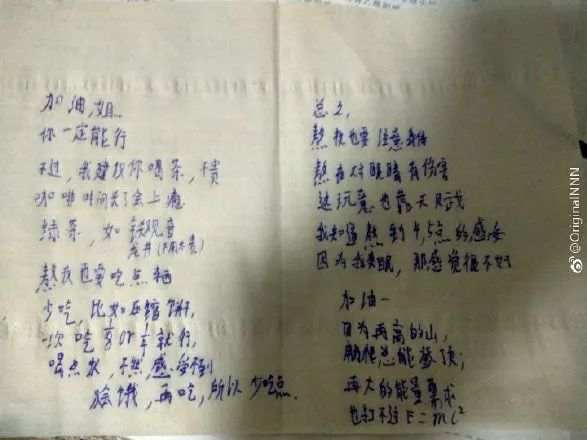 加油，姐
你一定能行
不过，我建议你喝茶，不
咖啡时间长了会上瘾
绿茶，如 铁观音
龙井
熬夜也要吃点
少吃，比如压缩饼干，
一次吃 就行，
喝点水，不然感受不到
饿，再吃，所以少吃点.
总之，
熬夜也要注意身体
熬夜对眼睛有伤害
这玩意也靠天赋
我知道熬到4,5点的感受
因为我失眠，那感觉很不好
加油~
因为再高的山，
总能登顶；
再大的能量
也 不过E=mc²
@OriginalNNN